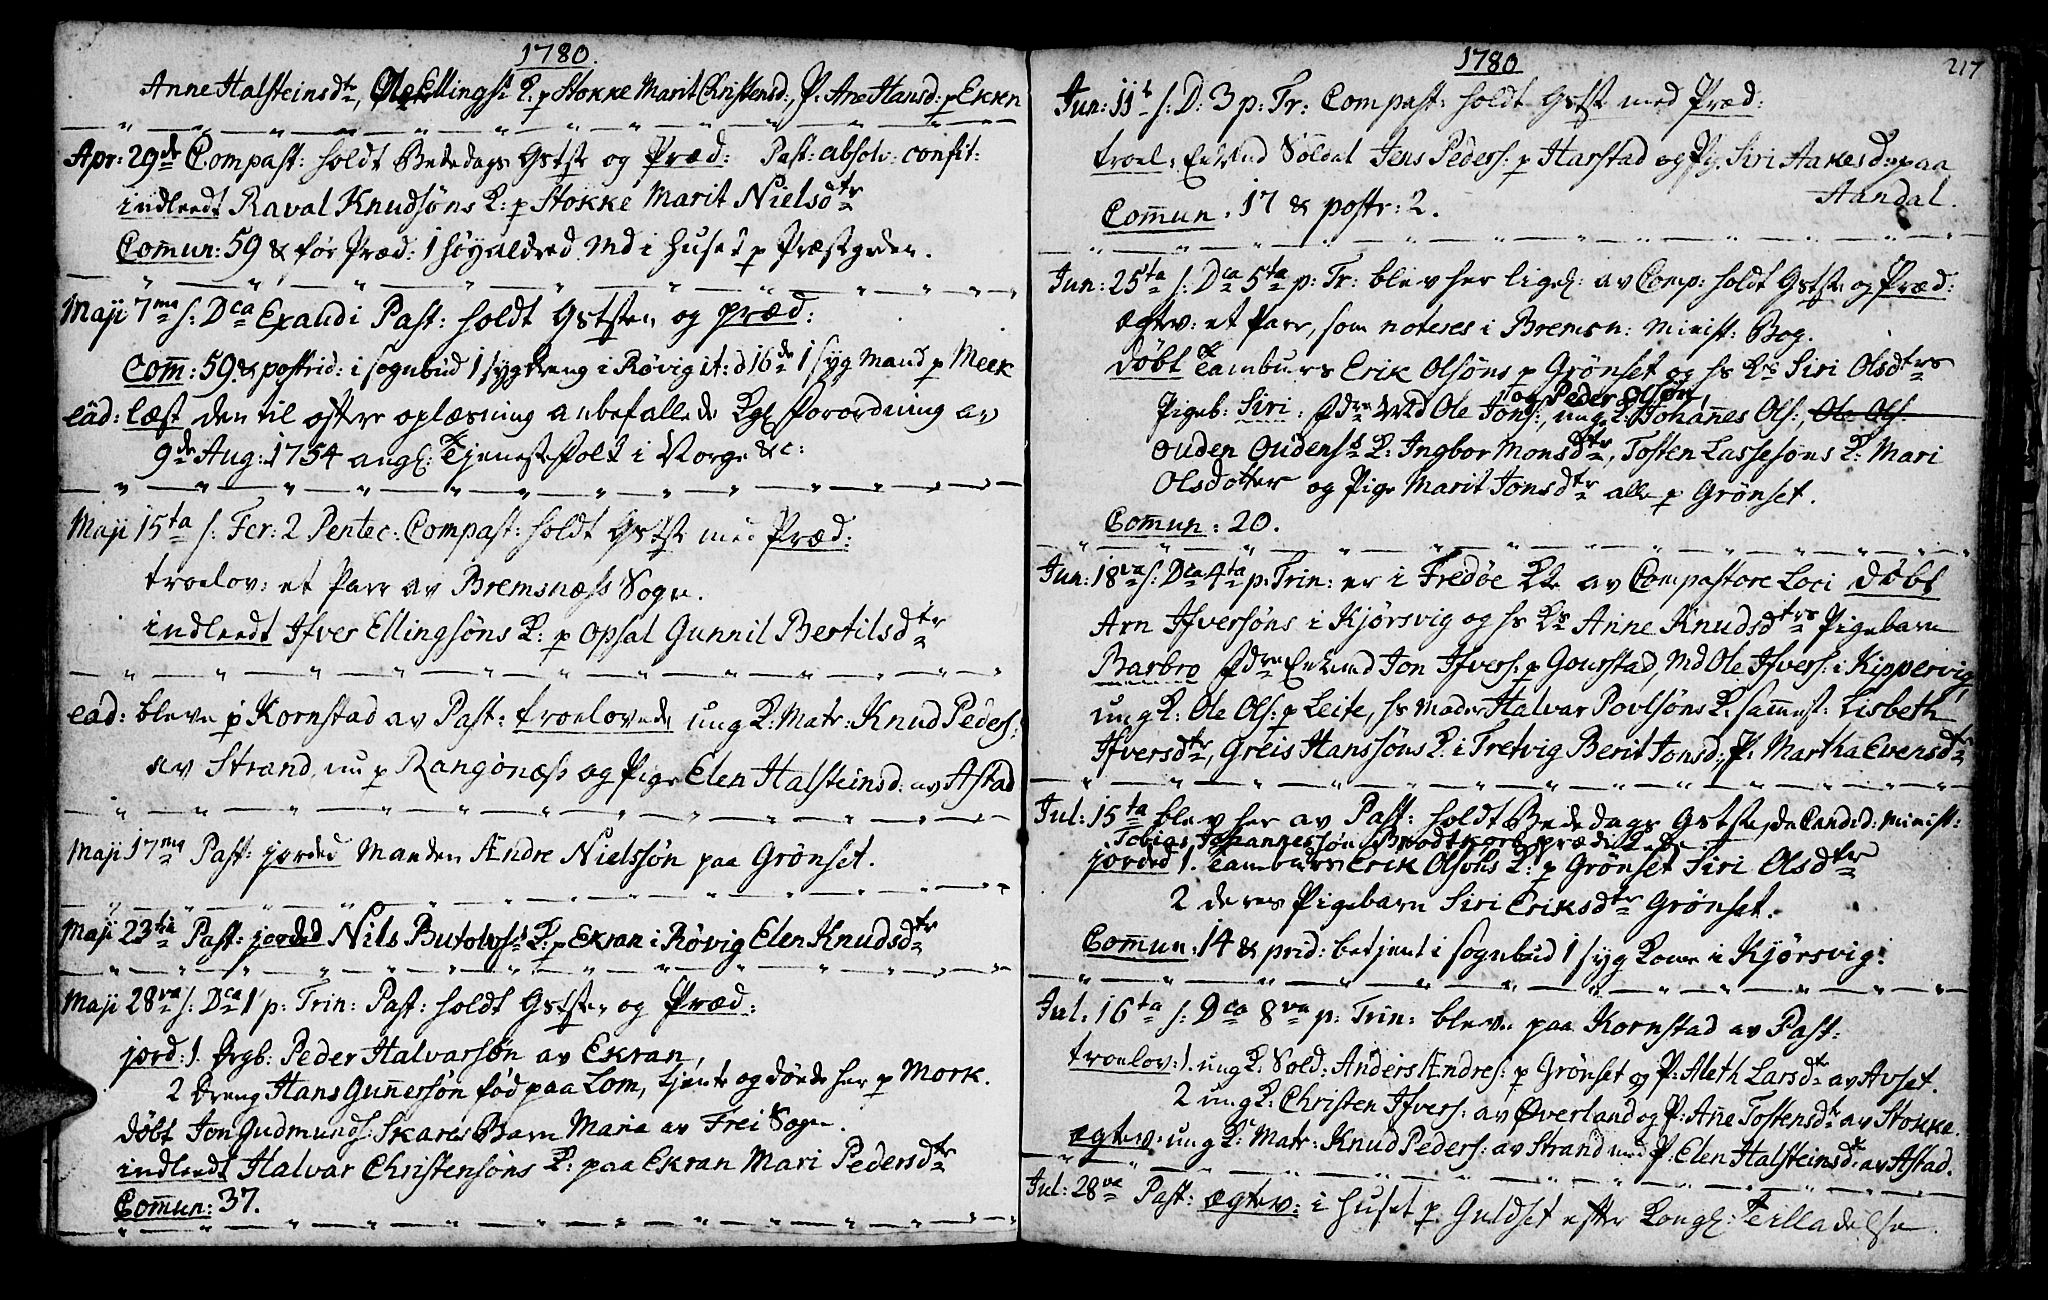 1780.
Anne Halsteinsdtr, Ole Ellings: K: p Stokke Marit Christensd:, P: Ane Hansd: p Ekkn
Apr: 29de Compast: holdt Bededags Gstste og Præd: Past: absolv: confit:
indleedt Raval Knudsøns K: p Stokke Marit Nielsdtr
Com̅un: 59 & før Præd: 1 høyaldred Md i Huset p Præstgrden.
Maji 7ma s: Dca Exaudi Past: holdt Gststen og præd:
Com̅: 59. & postrid: i sognebud 1 syg dreng i Røvig it: d 16de 1 syg Mand p Meek
eâd: læst den til oftere oplæsning anbefallede Kgl: Forordning av
9de Aug: 1754 angl: Tjenestefolk i Norge &c:
Maji 15ta s: Fer: 2 Pentec: Compast: holdt Gstste med Præd:
troelov: et Parr av Bremsnæss Sogn.
indleedt Ifver Ellingsøns K: p Opsal Gunnil Bertilsdtr
eâd: bleve p Kornstad av Past: troelovede ung K: Matr: Knud Peders:
av Strand, nu p Rangønæss og Pige Elen Halsteinsd: av Astad
Maji 17ma Past: jorded Manden Ændre Nielssøn paa Grønset.
Maji 23tia Past: jorded Nils Butolvs: K: p Ekran i Røvig Elen Knudsdtr
Maji 28va s: Dca 1 p: Trin: Past: holdt Gststen og Præd:
jord: 1. Drgb: Peder Halvarssøn av Ekran,
2 Dreng Hans Gun̅ersøn fød paa Lom, tjente og døde her p Mork.
døbt Jon Gudmunds: Skares Barn Maria av Frei Sogn.
indleedt Halvar Christensøns K: paa Ekran Mari Pedersdtr
Com̅un: 37.
1780
217
Jun: 11t s: D: 3 p: Tr: Compast: holdt Gstste med Præd:
troel: Enkmd Soldat Jens Peders: p Harstad og Pig: Siri Aakesd: paa
Aandal.
Com̅un: 17 & postr: 2.
Jun: 25ta s: Dca 5ta p: Tr: blev her ligel: av Comp: holdt Gstste og Præd:
ægtev: et Parr, som noteres i Bremsn: Minist: Bog.
døbt Tambours Erik Olsøns p Grønset og hs Ks Siri Olsdtrs
Pigeb: Siri: Fdre Md Ole Jons:, ung K: Johan̅es Ols:, Ole Ols:
og Peder Olsøn,
Ouden Oudens: K: Ingbor Monsdtr, Tosten Lassesøns K: Mari
Olsdotter og Pige Marit Jonsdtr alle p Grønset.
Com̅un: 20.
Jun: 18va s: Dca 4ta p: Trin: er i Fredøe Kke av Compastore Loci døbt
Arn Ifversøns i Kjørsvig og hs Ks Anne Knudsdtrs Pigebarn
Barbro Fdre Enkmd Jon Ifvers: p Gourstad, Md Ole Ifvers: i Kippervig,
ung K: Ole Ols: p Leite, hs Moder Halvar Povlsøns K: sam̅est: Lisbeth
Ifversdtr, Greis Hanssøns K: i Tretvig Berit Jonsd:, P: Martha Evensdtr
Jul: 15ta blev her av Past: holdt Bededags Gstste, da Candid: Minist:
Tobias Johannessøn Brodtkorb prædikede
jorded 1. Tambours Erik Olsøns K: p Grønset Siri Olsdtr
2 deres Pigebarn Siri Eriksdtr Grønset.
Com̅un: 14 & prid: betjent i sognebud 1 syg Kone i Kjørsvig.
Jul: 16ta s: Dca 8va p: Trin: bleve paa Kornstad av Past:
troelov: 1. ung K: Sold: Anders Ændres: p Grønset og P: Aleth Larsdtr av Avset.
2 ung K: Christen Ifvers: av Øverland og P: Ane Tostensdtr av Stokke.
ægtev: ung K: Matr: Knud Peders: av Strand med P: Elen Halsteinsd: av Astad.
Jul: 28va Past: ægtev: i Huset p Guldset efter Kongl: Teilladelse